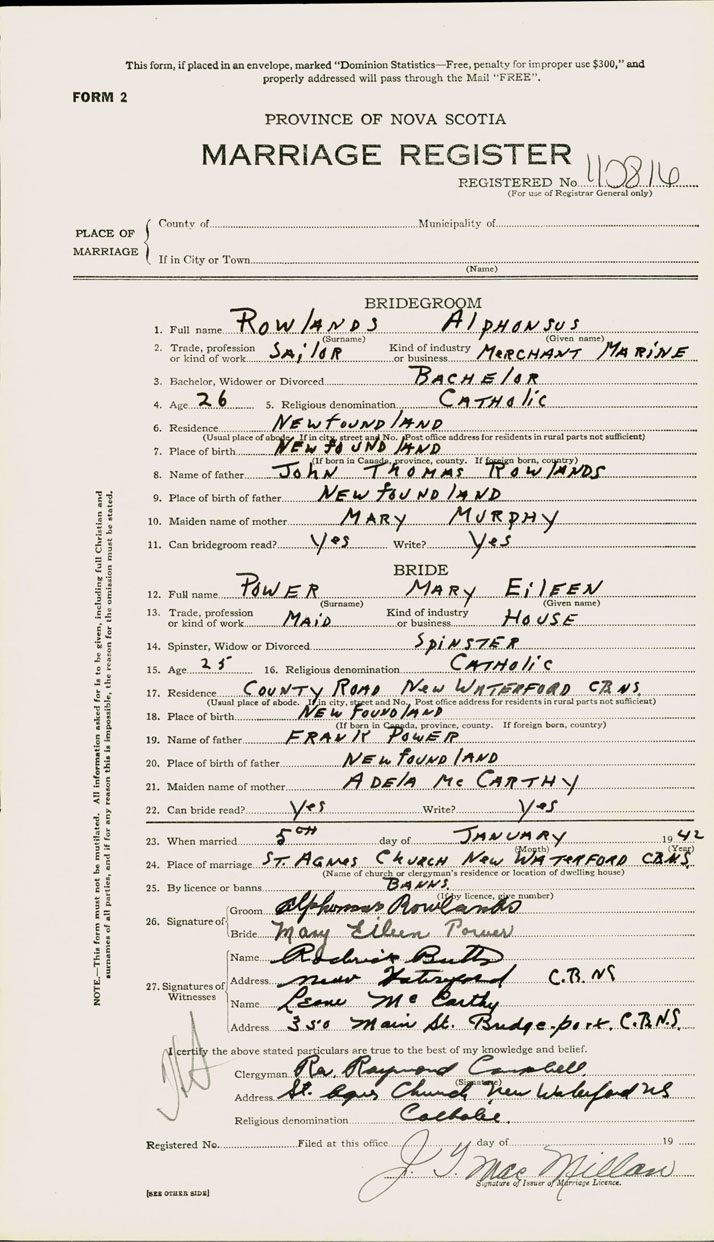 This form, if placed in an envelope, marked "Dominion Statistics—Free, penalty for improper use $300," and
properly addressed will pass through the Mail "FREE".
FORM 2
PROVINCE OF NOVA SCOTIA
MARRIAGE REGISTER
REGISTERED No. 110816
(For use of Registrar General only)
PLACE OF MARRIAGE
County of Municipality of
If in City or Town
(Name)
BRIDEGROOM
1. Full name ROWLANDS ALPHONSUS
(Surname) (Given name)
2. Trade, profession or kind of work SAILOR Kind of industry or business MERCHANT MARINE
3. Bachelor, Widower or Divorced BACHELOR
4. Age 26 5. Religious denomination CATHOLIC
6. Residence NEWFOUNDLAND
(Usual place of abode. If in city, street and No. Post office address for residents in rural parts not sufficient)
7. Place of birth NEWFOUNDLAND
(If born in Canada, province, county. If foreign born, country)
8. Name of father JOHN THOMAS ROWLANDS
9. Place of birth of father NEWFOUNDLAND
10. Maiden name of mother MARY MURPHY
11. Can bridegroom read? Yes Write? Yes
BRIDE
12. Full name POWER MARY EILEEN
(Surname) (Given name)
13. Trade, profession or kind of work MAID Kind of industry or business HOUSE
14. Spinster, Widow or Divorced SPINSTER
15. Age 25 16. Religious denomination CATHOLIC
17. Residence COUNTY ROAD NEW WATERFORD CBNS.
(Usual place of abode. If in city, street and No. Post office address for residents in rural parts not sufficient)
18. Place of birth NEWFOUNDLAND
(If born in Canada, province, county. If foreign born, country)
19. Name of father FRANK POWER
20. Place of birth of father NEWFOUNDLAND
21. Maiden name of mother ADELA McCARTHY
22. Can bride read? Yes Write? Yes
23. When married 5TH day of JANUARY 1942
(Month) (Year)
24. Place of marriage ST. AGNES CHURCH NEW WATERFORD C.B.N.S.
(Name of church or clergyman's residence or location of dwelling house)
25. By licence or banns BANNS
(If by licence, give number)
26. Signature of
Groom Alphonsus Rowlands
Bride Mary Eileen Power
27. Signatures of Witnesses
Name Roderick Butts
Address New Waterford C.B. NS
Name Leane McCarthy
Address 350 Main St. Bridgeport. C.B.N.S.
I certify the above stated particulars are true to the best of my knowledge and belief.
Clergyman Rev. Raymond Campbell
(Signature)
Address St. Agnes Church, New Waterford NS
Religious denomination Catholic.
Registered No. Filed at this office day of 19
J. Y. MacMillan
Signature of Issuer of Marriage Licence.
[SEE OTHER SIDE]
NOTE.—This form must not be mutilated. All information asked for is to be given, including full Christian and
surnames of all parties, and if for any reason this is impossible, the reason for the omission must be stated.